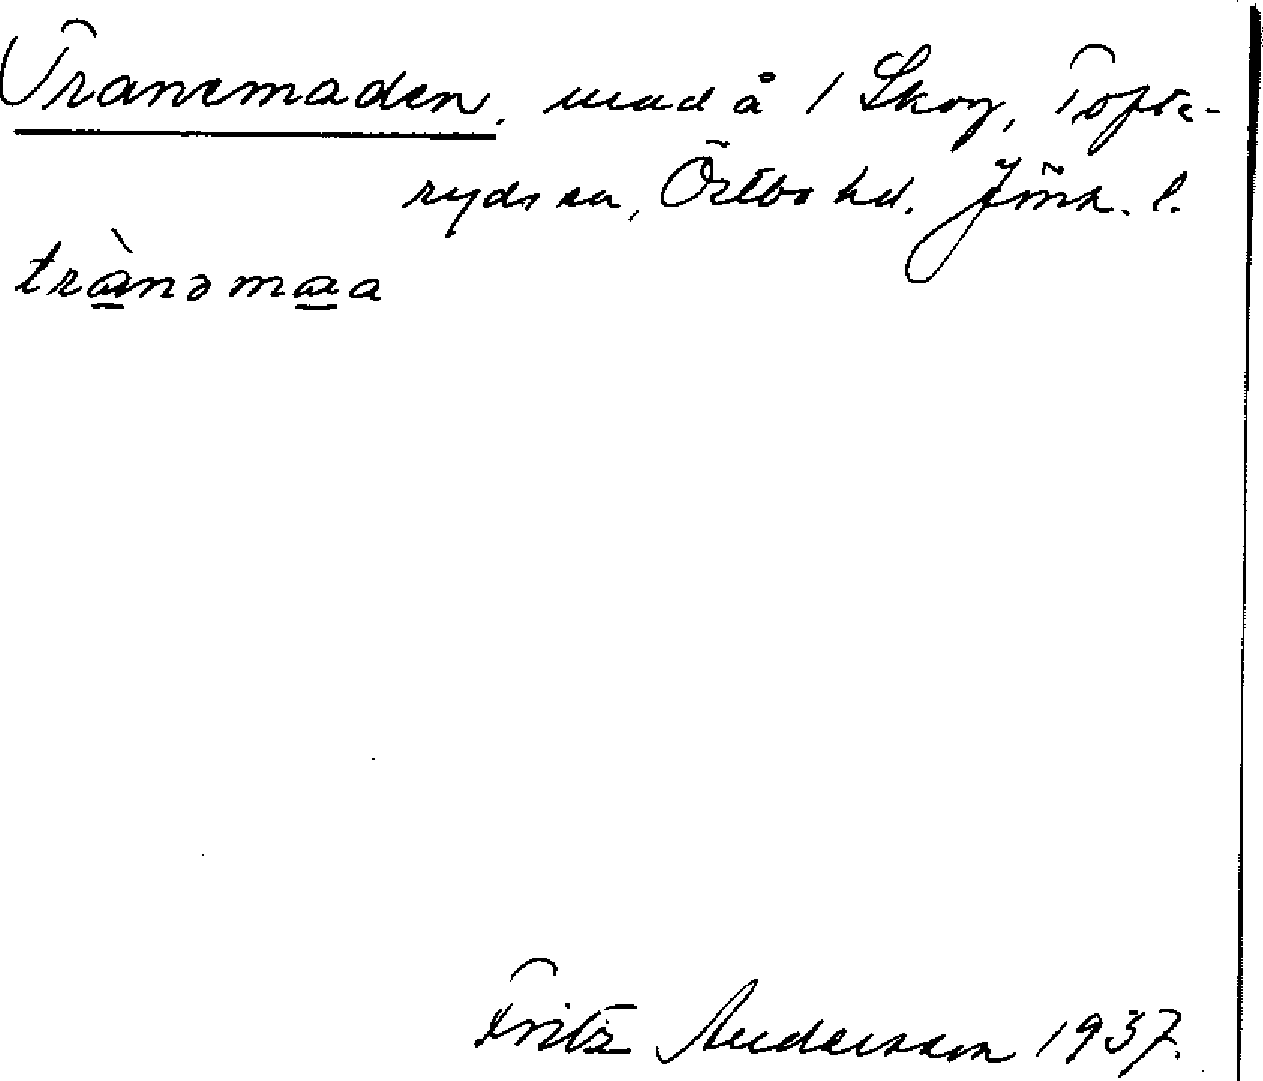 Tranemaden, mad å 1 Skog, Tofte-
ryds sn, Östbo hd. Jönk. l.
trànəmaa
Fritz Andersson 1937.